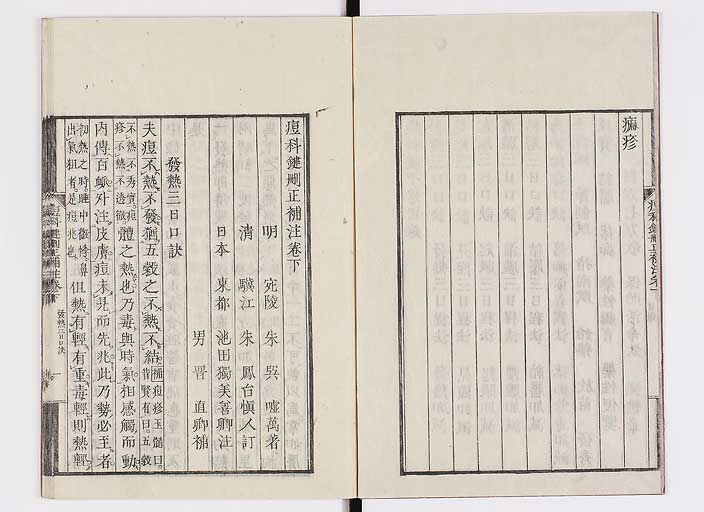 痲疹
痘科鍵刪正補注卷下
明　宛陵　朱巽　噓萬著
清　驥江　朱鳳台慎人訂
日本　東都　池田獨美善卿注
男　晋　直卿補
發熱三日口訣
夫痘不熱不發猶五穀之不熱不結補痘疹玉髓曰昔賢有曰五穀
不熱不秀實痘疹不熱不透徹體之熱也乃毒與時氣相感觸而動
內傳百脈外注皮膚痘未見而先兆此乃勢必至者
初熱之時睡中微惕鼻出氣粗者是痘兆也但熱有輕有重毒輕則熱輕
發熱三日口訣